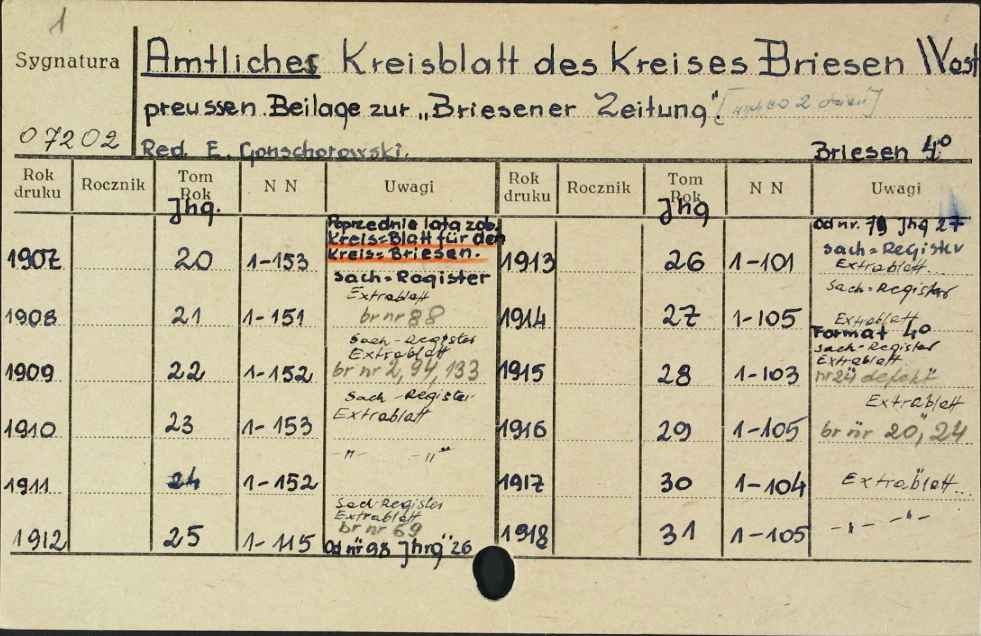 1
Sygnatura
Amtliches Kreisblatt des Kreises Briesen West
preussen. Beilage zur „Briesener Zeitung".
07202
Red. E. Gonschorowski.
Briesen 4°
Rok druku Rocznik Tom Rok NN Uwagi Rok druku Rocznik Tom Rok NN Uwagi
Jhg. Jhg
Poprzednie lata zob.
Kreis=Blatt für den
Kreis=Briesen.
1907 20 1-153
Sach=Register
Extrablatt
1908 21 1-151 br nr 88
Sach-Register
Extrablatt
1909 22 1-152 br nr 2, 94, 133
Sach-Register
Extrablatt
1910 23 1-153
-"- -"-
1911 24 1-152
Sach Register
Extrablatt
br nr 69
1912 25 1-115 Od nr 98 Jhrg 26
Od nr. 79 Jhg 27
Sach=Register
1913 26 1-101 Extrablatt
Sach=Register
1914 27 1-105 Extrablatt
Format 4°
Sach-Register
Extrablatt
1915 28 1-103 nr 24 defekt
Extrablatt
1916 29 1-105 br nr 20, 24
1917 30 1-104 Extrablatt
1918 31 1-105 -"- -"-